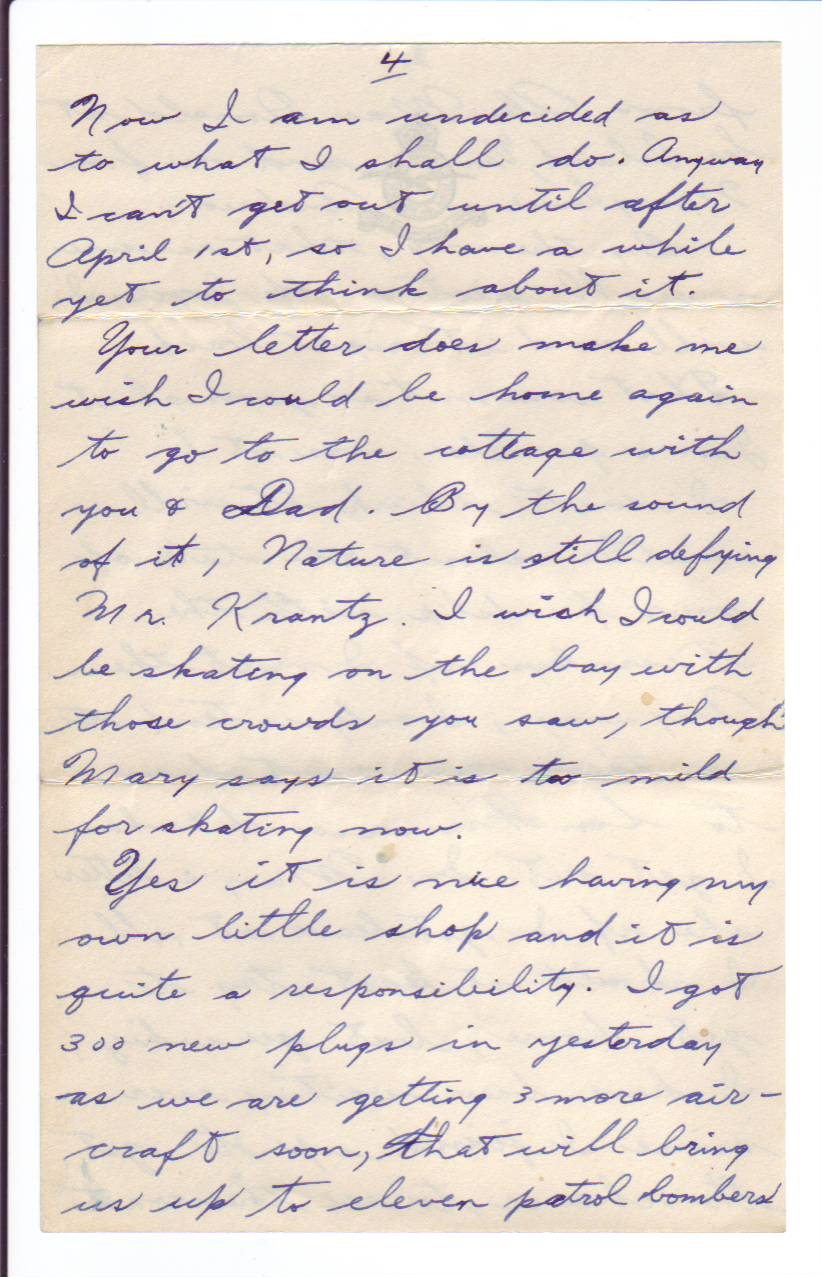 4
Now I am undecided as
to what I shall do. Anyway
I can't get out until after
April 1st, so I have a while
yet to think about it.
Your letter does make me
wish I could be home again
to go to the cottage with
you & Dad. By the sound
of it, Nature is still defying
Mr. Krantz. I wish I could
be skating on the bay with
those crowds you saw, though
Mary says it is too mild
for skating now.
Yes it is nice having my
own little shop and it is
quite a responsibility. I got
300 new plugs in yesterday
as we are getting 3 more air-
craft soon, that will bring
us up to eleven patrol bombers